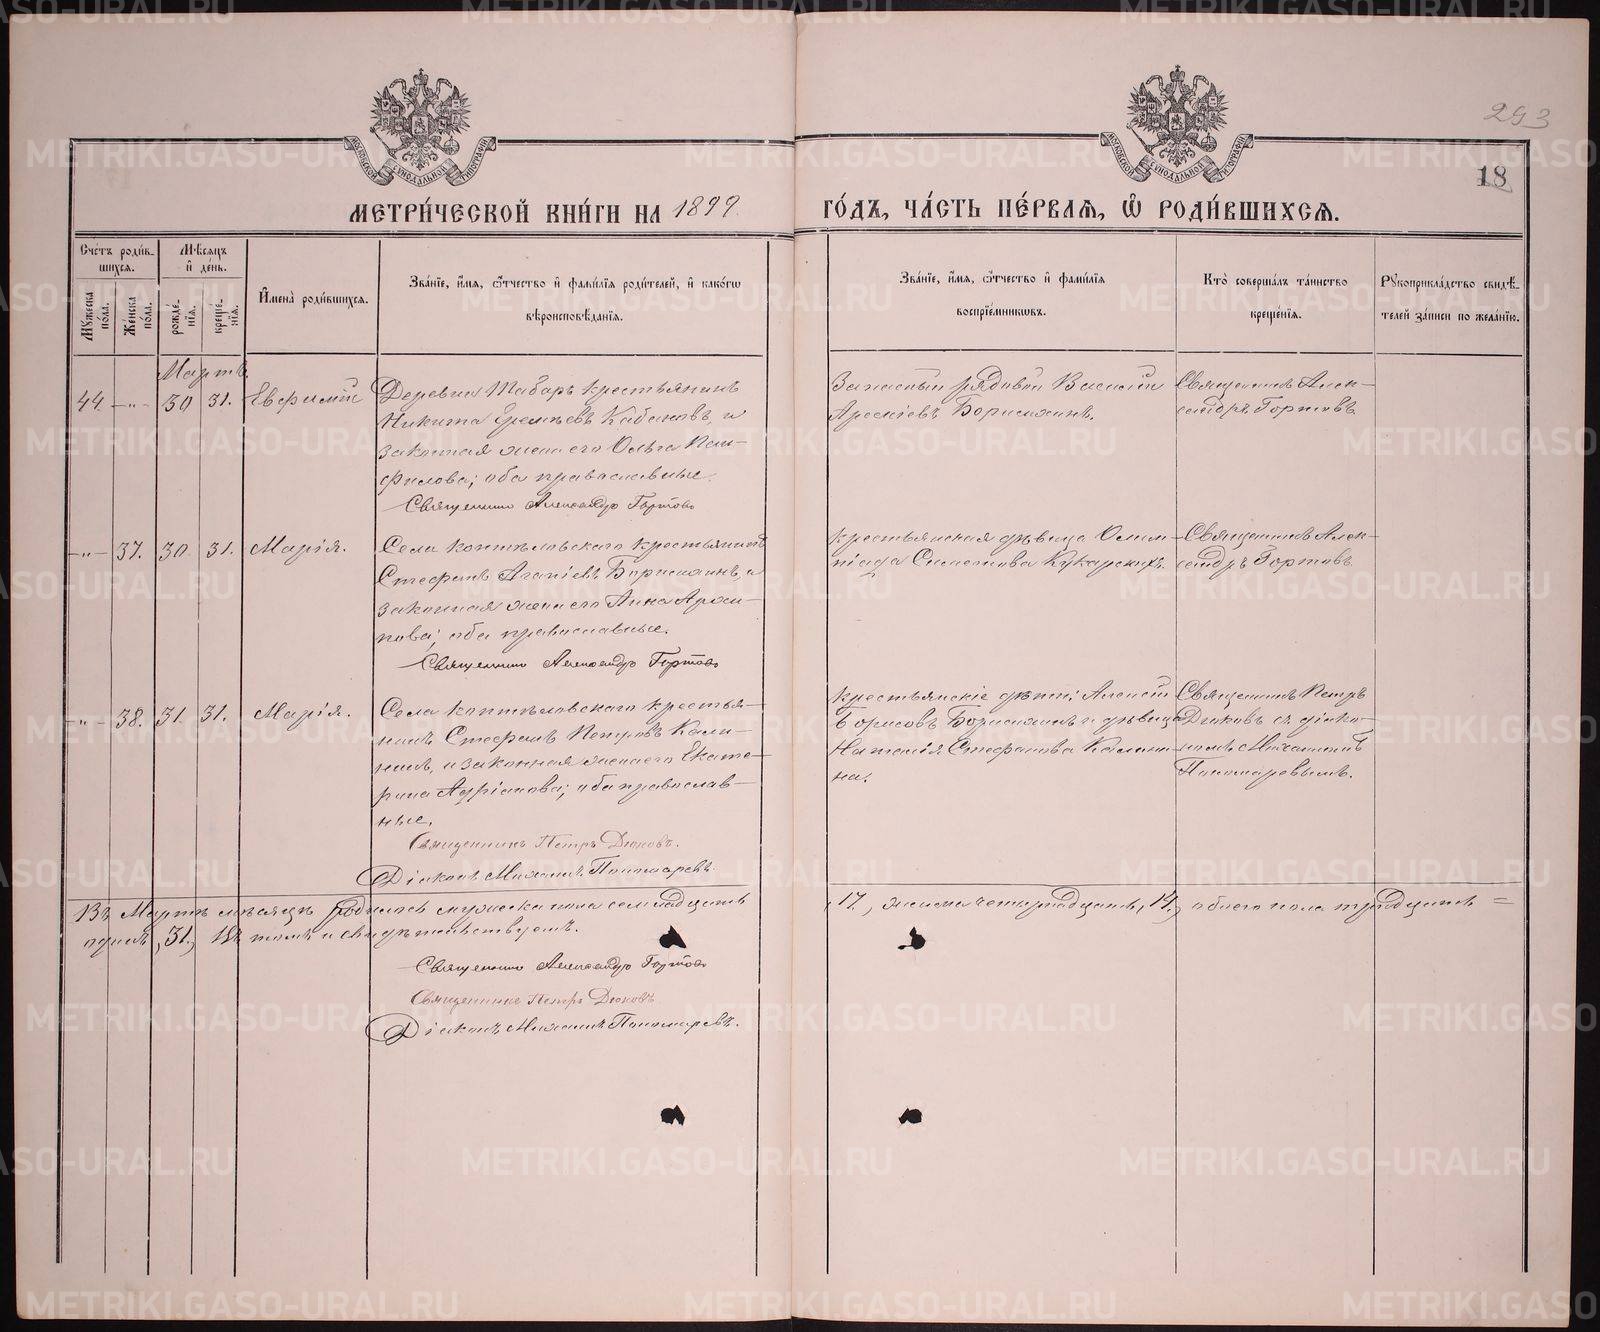 293
18
МОСКОВСКОЙ СѴНОДАЛЬНОЙ ТИПОГРАФІИ
МОСКОВСКОЙ СѴНОДАЛЬНОЙ ТИПОГРАФІИ
МЕТРИ́ЧЕСКОЙ КНИ́ГИ НА 1899
ГО́ДЪ, ЧА́СТЬ ПЕ́РВАЯ, Ѽ РОДИ́ВШИХСЯ.
Сче́тъ роди́в-
шихся.
Му́жеска по́ла.
Же́нска по́ла.
Мѣ́сяцъ
и де́нь.
рожде́-
нїя.
креще́-
нїя.
И҆мена̀ роди́вшихся.
Зва́нїе, и҆́мя, ѻ҆́тчество и҆ фами́лїя роди́телей, и҆ како́гѡ
вѣроисповѣ́данїя.
Зва́нїе, и҆́мя, ѻ҆́тчество и҆ фами́лїя
воспрїе́мникѡвъ.
Кто̀ соверша́лъ та́инство
креще́нїя.
Рꙋкоприкла́дство свидѣ́-
телей за́писи по жела́нїю.
Мартъ.
44. —„— 30 31. Евфимій
Деревни Шабаръ крестьянинъ
Никита Еремѣевъ Кабаковъ, и
законная жена его Ольга Пам-
филова; оба православные.
Священникъ Александръ Гортовъ
Запасный рядовой Василій
Арсеніевъ Борисихинъ.
Священникъ Алек-
сандръ Гортовъ
—„— 37. 30. 31. Марія.
Села Коптѣловскаго крестьянинъ
Стефанъ Агапіевъ Борисихинъ, и
законная жена его Анна Архи-
пова; оба православные.
Священникъ Александръ Гортовъ
Крестьянская дѣвица Олим-
піада Кукарскихъ.
Священникъ Алек-
сандръ Гортовъ.
—„— 38. 31. 31. Марія.
Села Коптѣловскаго крестья-
нинъ Стефанъ Петровъ Кали-
нинъ, и законная жена его Екате-
рина Адріанова; оба православ-
ные.
Священникъ Петръ Дюковъ.
Діаконъ Михаилъ Пономаревъ.
Крестьянскіе дѣти: Алексій
Борисовъ Борисихинъ и дѣвица
Наталія Стефанова Калини-
на.
Священникъ Петръ
Дюковъ съ діако-
номъ Михаиломъ
Пономаревымъ.
Въ Мартѣ мѣсяцѣ родилось мужеска пола семнадцать
, 17, женска четырнадцать, 14, обоего пола тридцать =
одинъ, 31, Въ томъ и свидѣтельствуемъ.
Священникъ Александръ Гортовъ
Священникъ Петръ Дюковъ
Діаконъ Михаилъ Пономаревъ.
METRIKI.GASO-URAL.RU